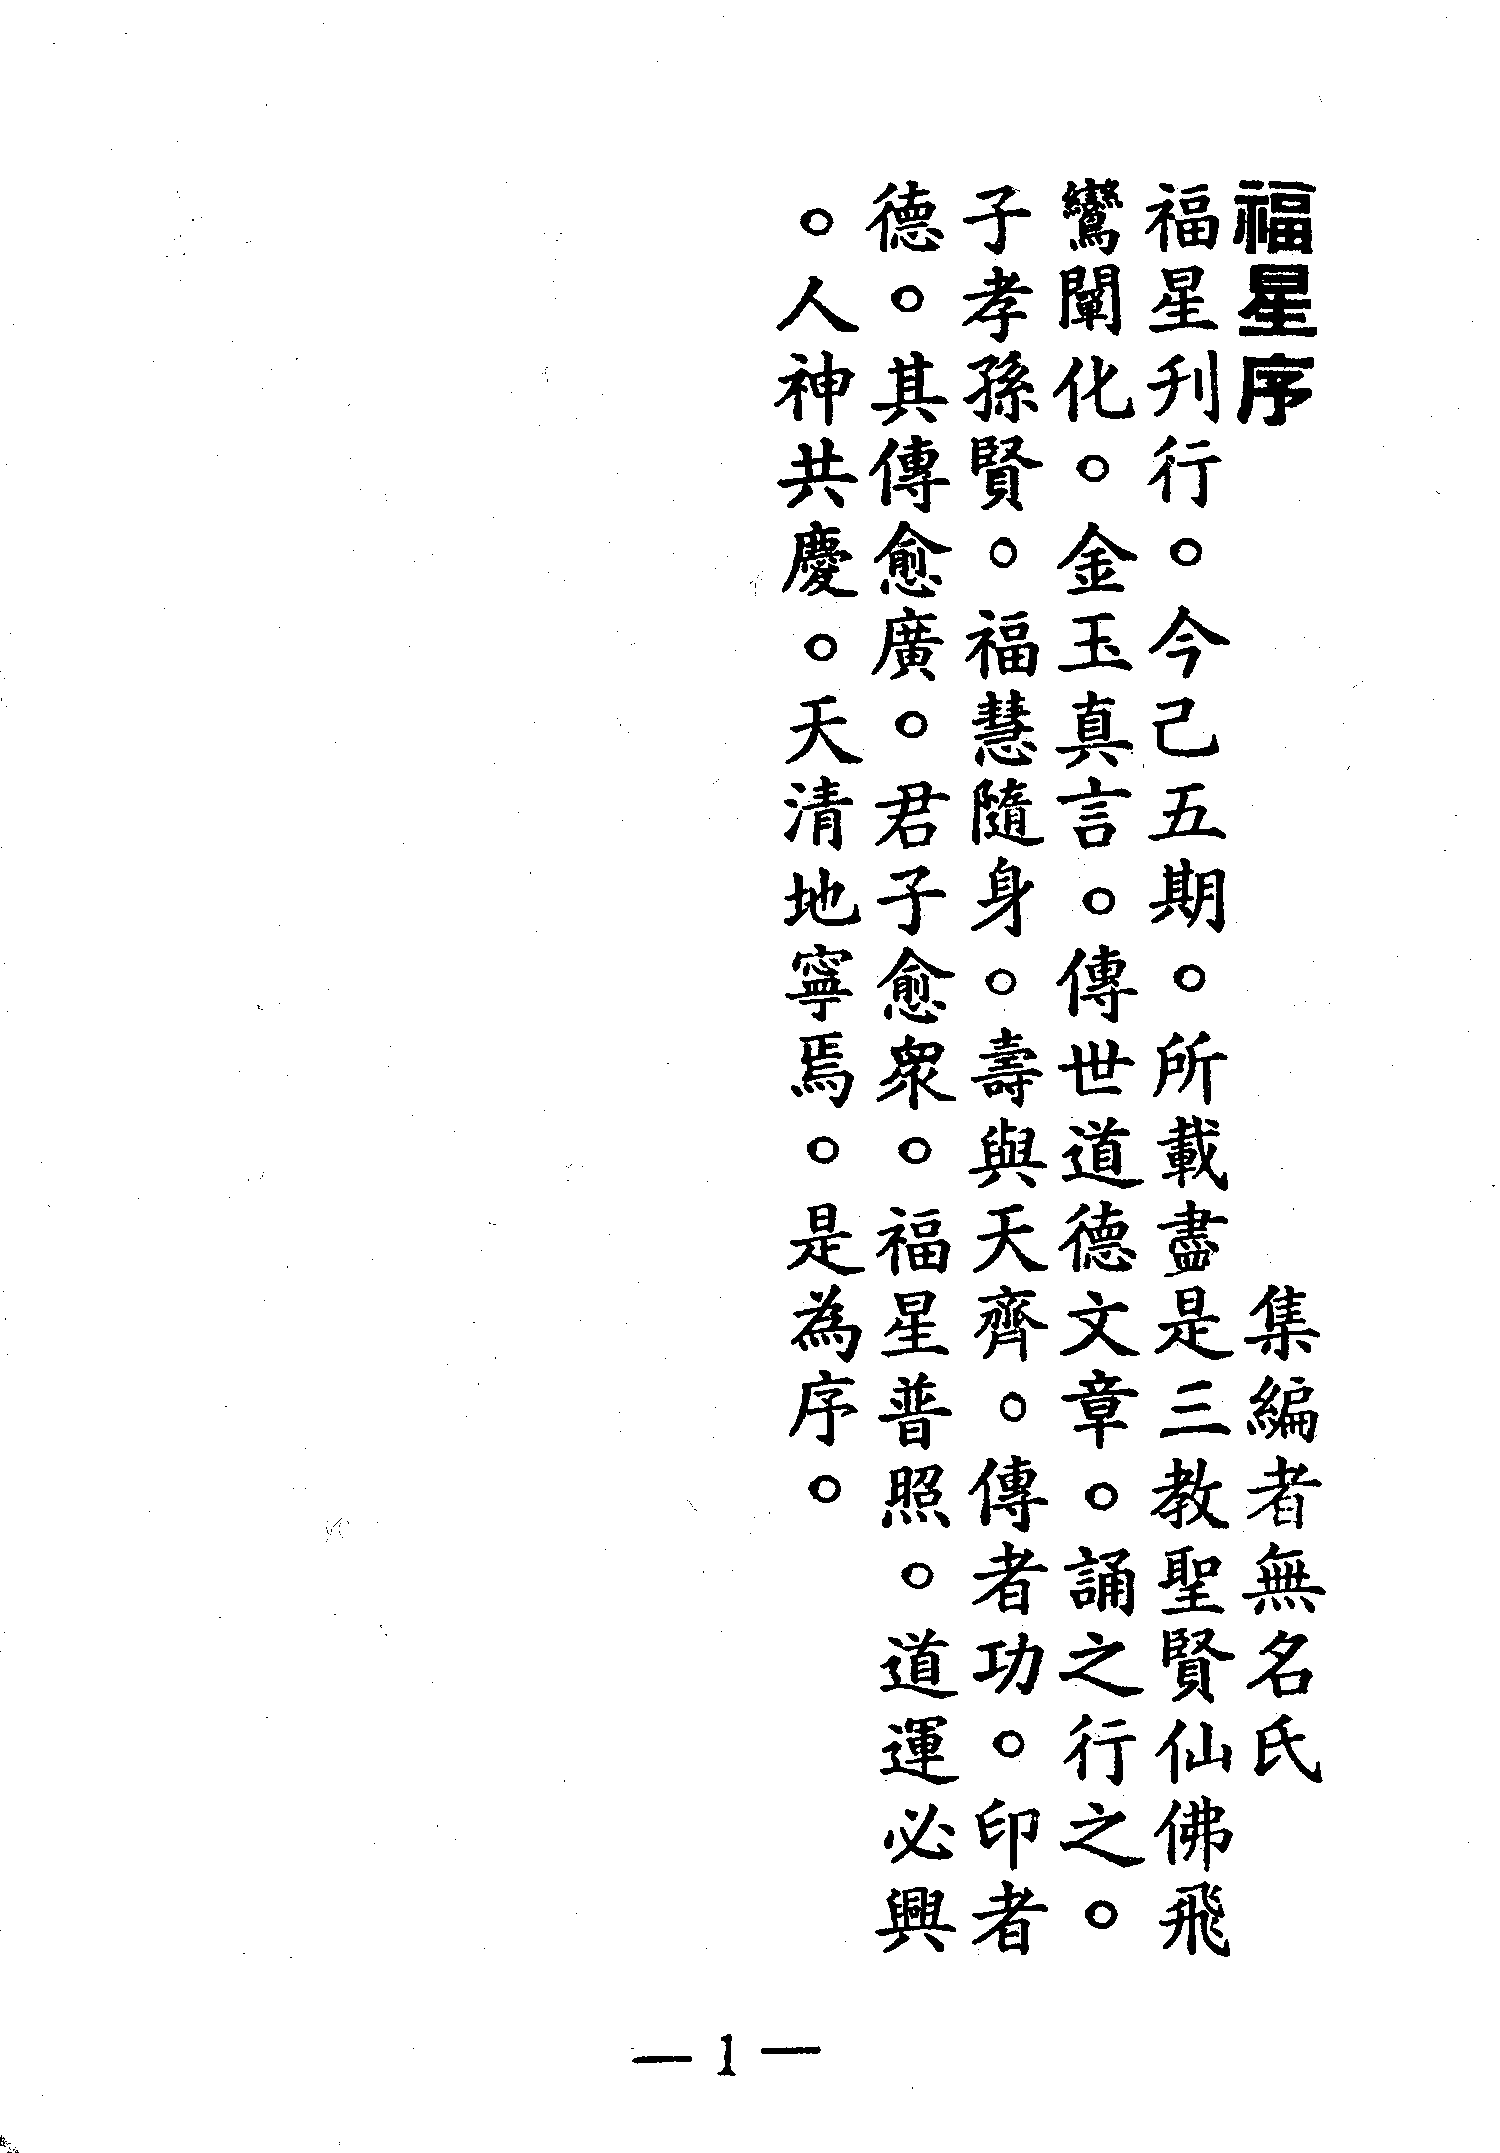 福星序　集編者無名氏
福星刋行。今己五期。所載盡是三教聖賢仙佛飛
鸞闡化。金玉真言。傳世道德文章。誦之行之。
子孝孫賢。福慧隨身。壽與天齊。傳者功。印者
德。其傳愈廣。君子愈衆。福星普照。道運必興
。人神共慶。天清地寧焉。是為序。
— 1 —